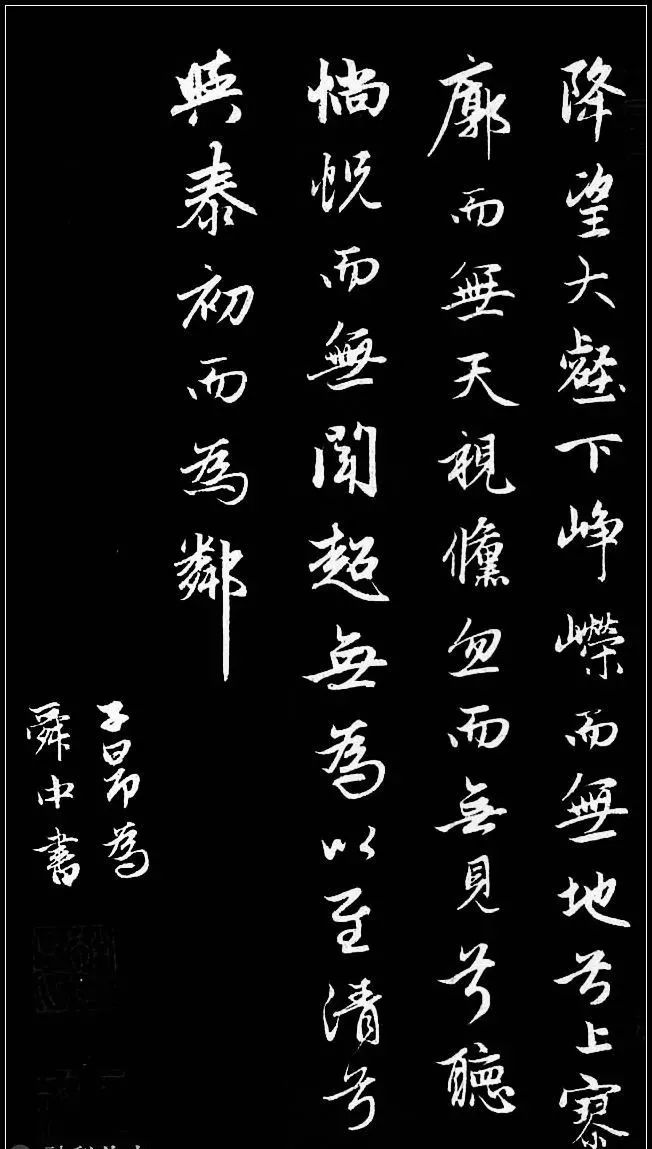 降望大壑下崢嶸而無地兮上寥
廓而無天視儵忽而無見兮聽
惝怳而無聞超無為以至清兮
與泰初而為鄰
子昂為
舜中書